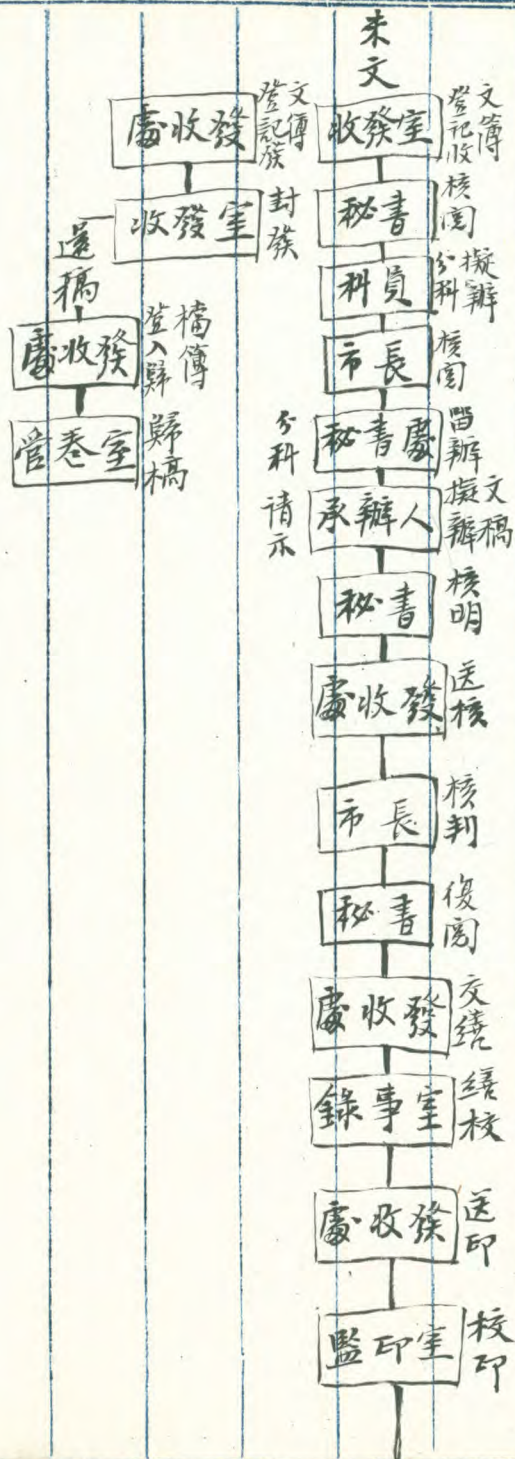 來文
收發室
登記收
文簿
秘書
核閱
科員
分科
擬辦
市長
核閱
秘書處
留辦
分科
承辦人
擬辦
文稿
請示
秘書
核明
處收發
送核
市長
核判
秘書
復閱
處收發
交繕
錄事室
繕校
處收發
送印
監印室
校印
處收發
登記發
文簿
收發室
封發
還稿
處收發
登入歸
檔簿
管卷室
歸檔